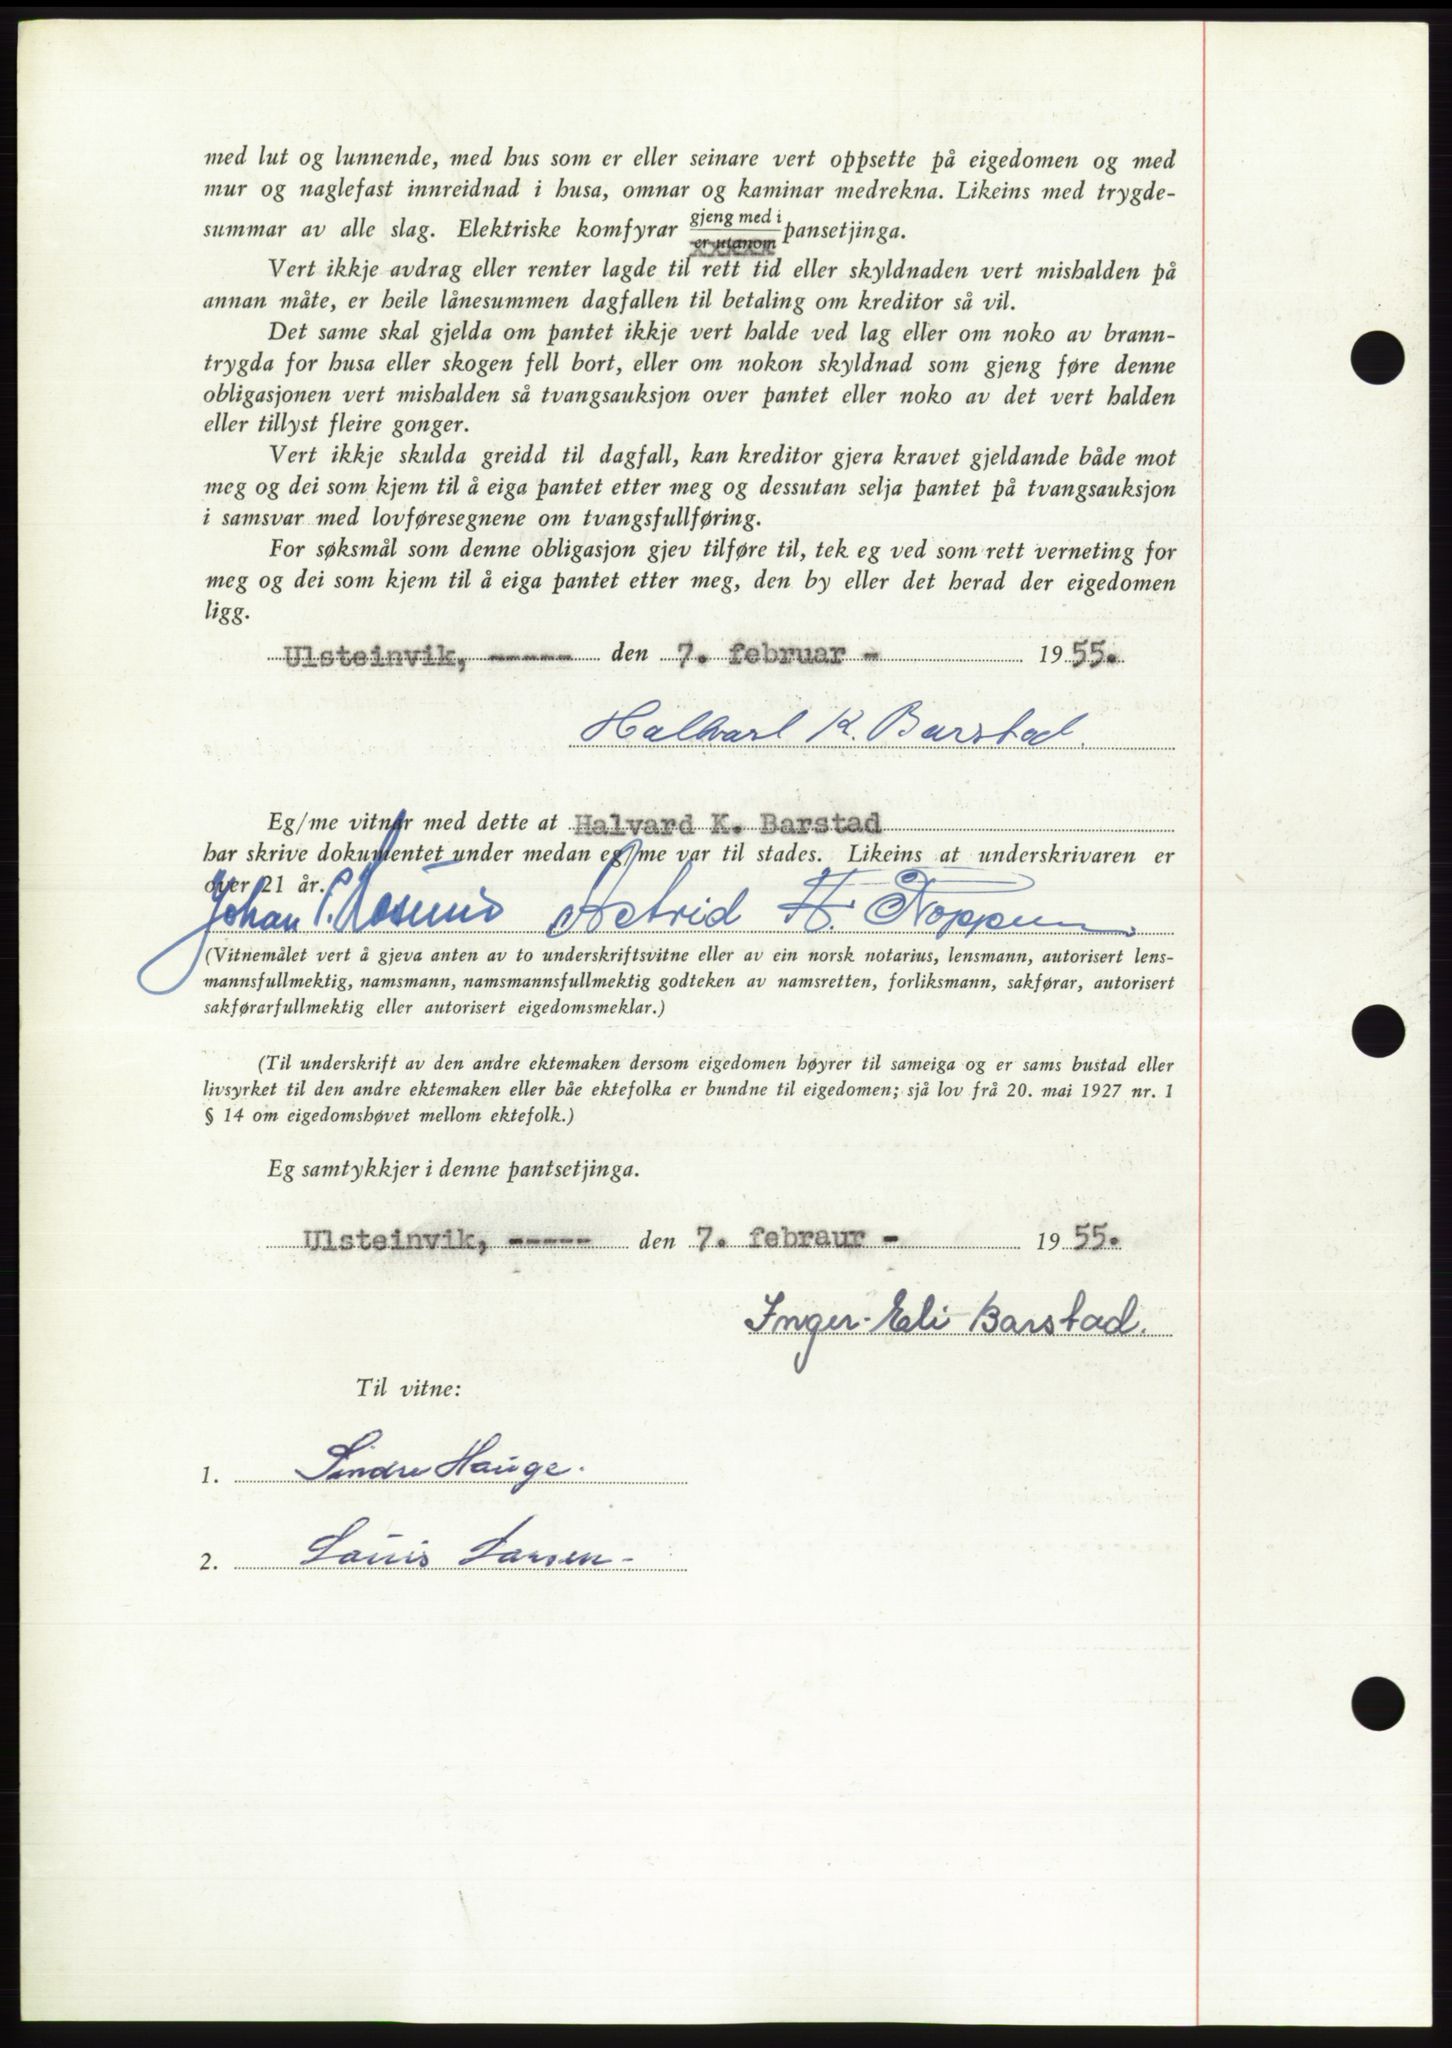 med lut og lunnende, med hus som er eller seinare vert oppsette på eigedomen og med
mur og naglefast innreidnad i husa, omnar og kaminar medrekna. Likeins med trygde-
summar av alle slag. Elektriske komfyrar gjeng med i
er utanom pansetjinga.
Vert ikkje avdrag eller renter lagde til rett tid eller skyldnaden vert mishalden på
annan måte, er heile lånesummen dagfallen til betaling om kreditor så vil.
Det same skal gjelda om pantet ikkje vert halde ved lag eller om noko av brann-
trygda for husa eller skogen fell bort, eller om nokon skyldnad som gjeng føre denne
obligasjonen vert mishalden så tvangsauksjon over pantet eller noko av det vert halden
eller tillyst fleire gonger.
Vert ikkje skulda greidd til dagfall, kan kreditor gjera kravet gjeldande både mot
meg og dei som kjem til å eiga pantet etter meg og dessutan selja pantet på tvangsauksjon
i samsvar med lovføresegnene om tvangsfullføring.
For søksmål som denne obligasjon gjev tilføre til, tek eg ved som rett verneting for
meg og dei som kjem til å eiga pantet etter meg, den by eller det herad der eigedomen
ligg.
Ulsteinvik, ----- den 7. februar - 1955.
Halvard K. Barstad.
Eg/me vitnar med dette at Halvard K. Barstad
har skrive dokumentet under medan eg/me var til stades. Likeins at underskrivaren er
over 21 år.
Johan P. Astrid H. Noppen.
(Vitnemålet vert å gjeva anten av to underskriftsvitne eller av ein norsk notarius, lensmann, autorisert lens-
mannsfullmektig, namsmann, namsmannsfullmektig godteken av namsretten, forliksmann, sakførar, autorisert
sakførarfullmektig eller autorisert eigedomsmeklar.)
(Til underskrift av den andre ektemaken dersom eigedomen høyrer til sameiga og er sams bustad eller
livsyrket til den andre ektemaken eller båe ektefolka er bundne til eigedomen; sjå lov frå 20. mai 1927 nr. 1
§ 14 om eigedomshøvet mellom ektefolk.)
Eg samtykkjer i denne pantsetjinga.
Ulsteinvik, ----- den 7. febraur - 1955.
Inger-Eli Barstad.
Til vitne:
1. Sindre Hauge.
2. Lauis Larsen-